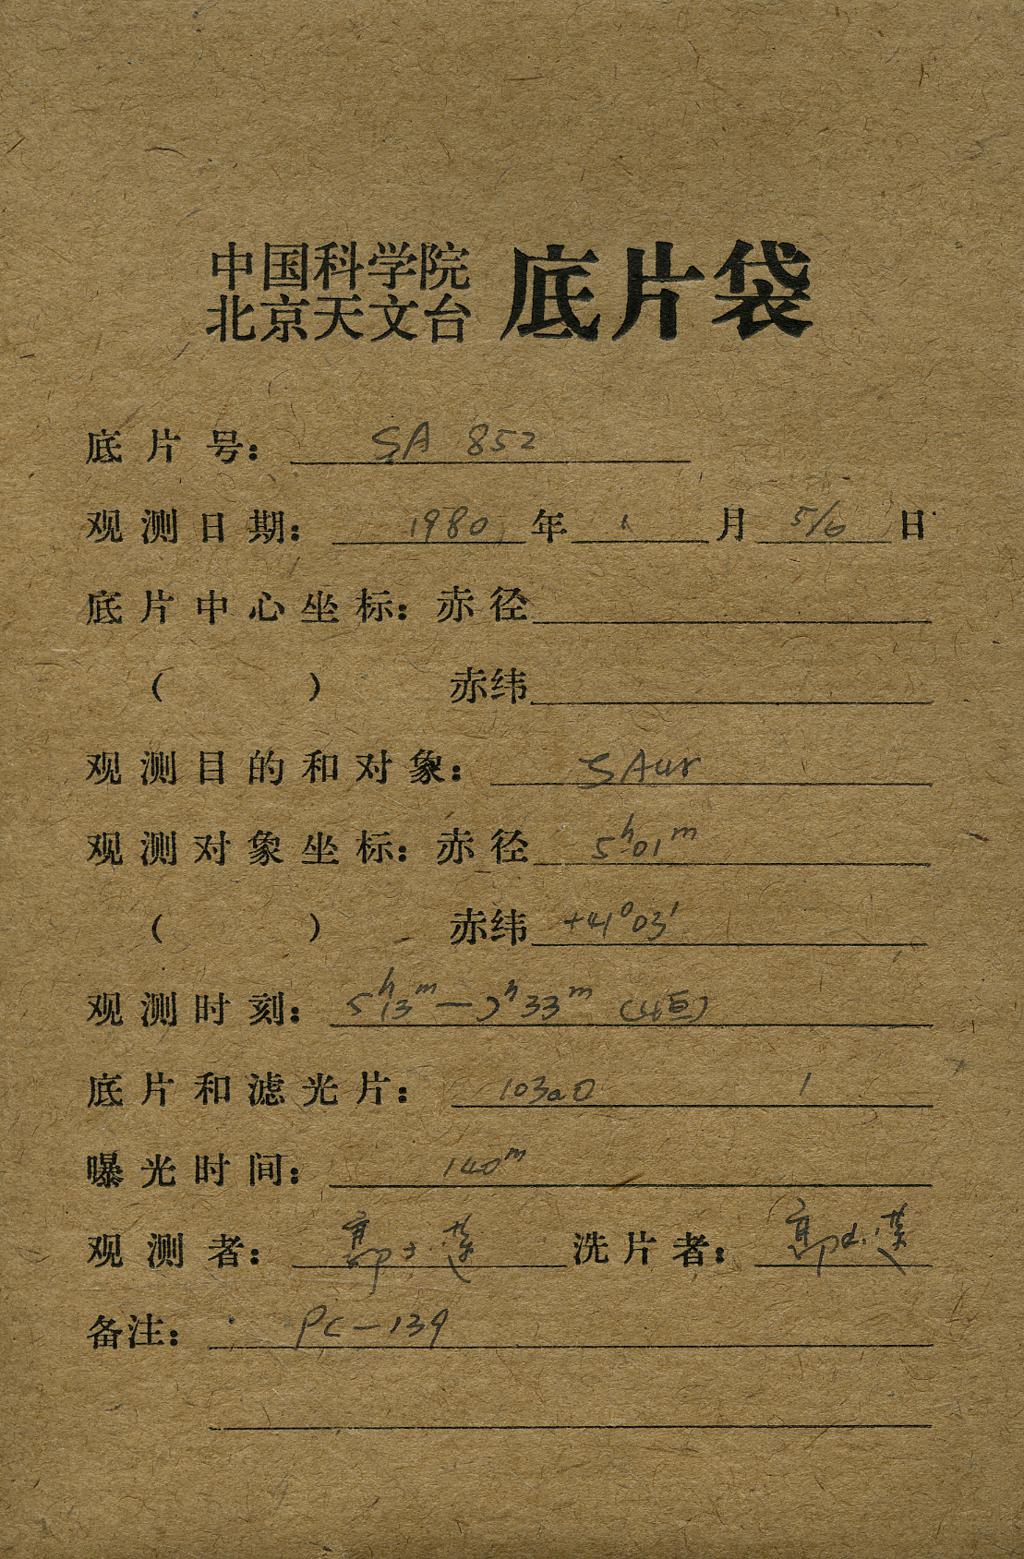 中国科学院
北京天文台 底片袋
底片号: SA 852
观测日期: 1980 年 1 月 5/6 日
底片中心坐标: 赤径
( ) 赤纬
观测目的和对象: S Aur
观测对象坐标: 赤径 5ʰ01ᵐ
( ) 赤纬 +41°03′
观测时刻: 5ʰ13ᵐ — ʰ33ᵐ (恒)
底片和滤光片: 103aO 1
曝光时间: 140ᵐ
观测者: 洗片者:
备注: PC-139